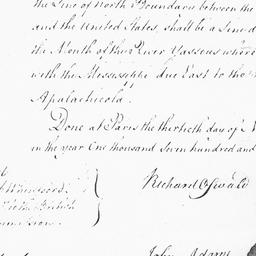 the Line of North Boundary between the
and the United States, shall be a Line d
the Mouth of the River Yassous where
with the Mississippi due East to the
Apalachicola.
Done at Paris the thirtieth day of N
in the year One thousand Seven hundred and
Richard Oswald
Whitefoord
British
mmission.
John Adams